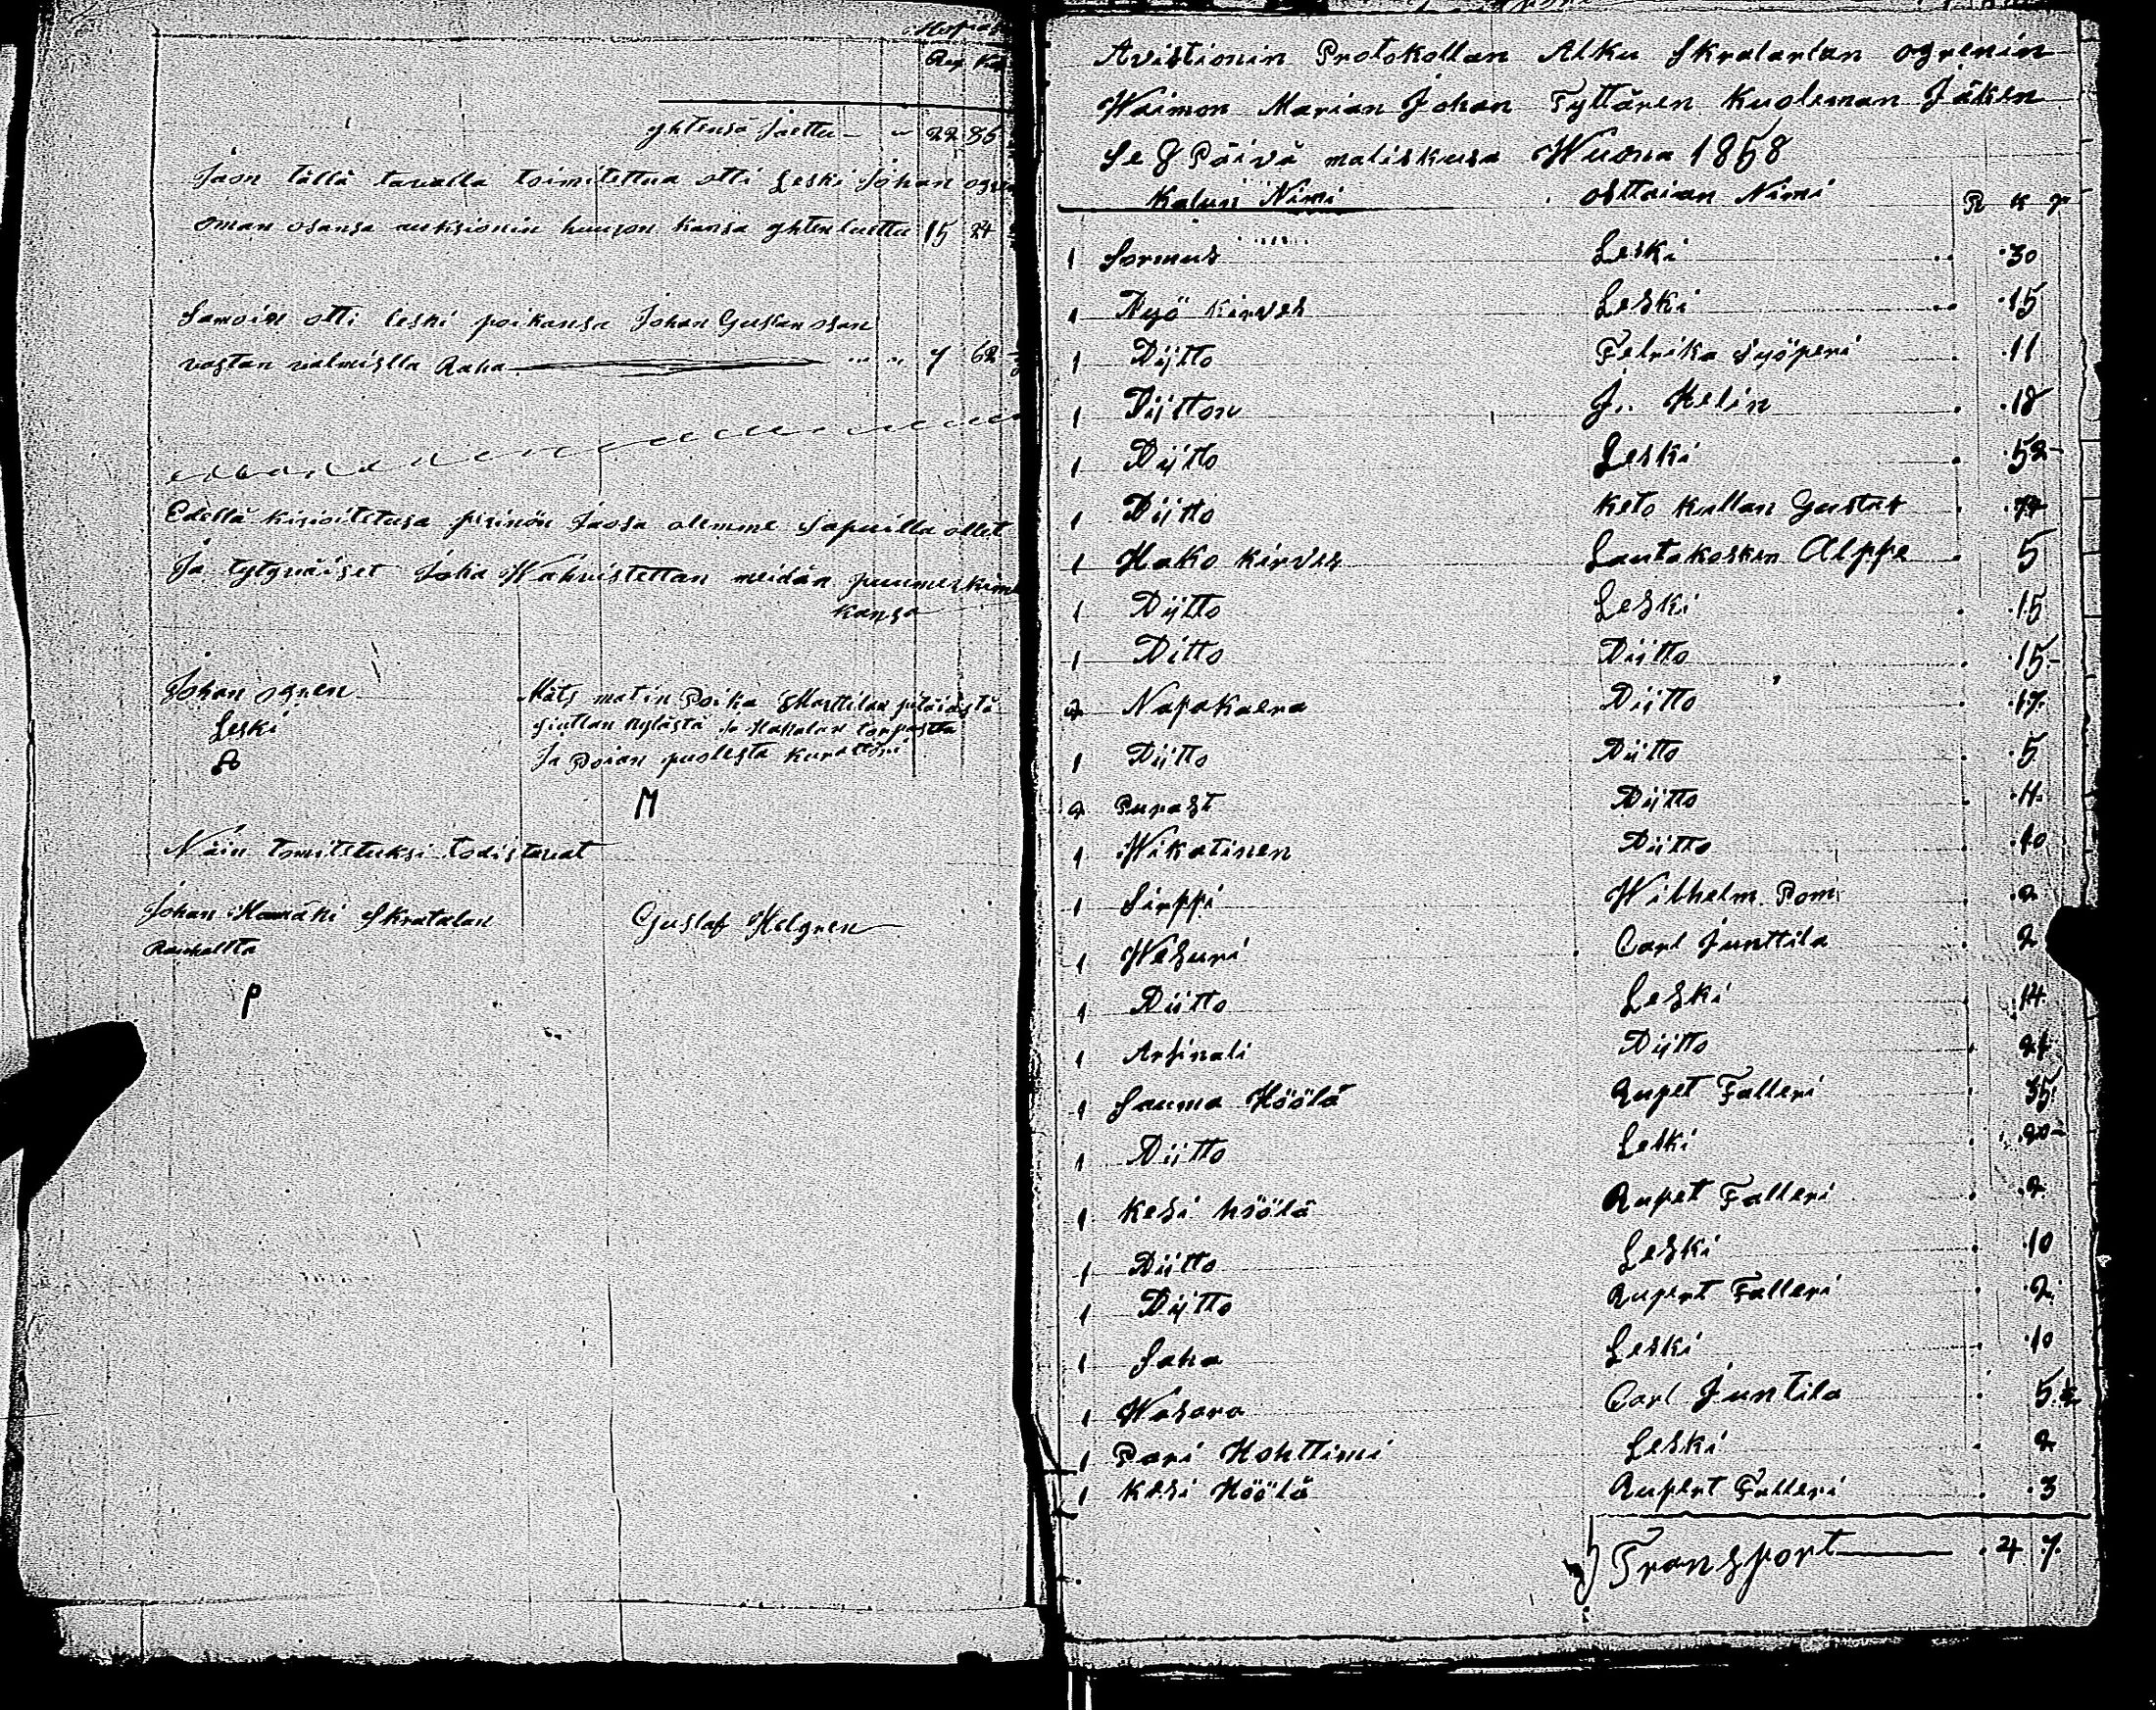 Rup Ko
yhtensä Jaettu — " 22 86
Jaon tällä tavalla toimitettua otti Leski Johan ogren
oman osansa auksionin huuson kansa yhten luettu 15 24
Samoin otti leski poikansa Johan Gustan osan
vastan valmislla Raha " " 7 62
Edellä kirioitetusa perinön Jaosa olemme Sapuilla ollet
Ja tytyväiset Joka Wahvistettan meidän puumerkime
kansa
Johan ogren
Leski
Mats matin Poika Marttilan pitäiästä
kylästä Ja Hakalan torpasta
Ja Poian puolesta kurattori
M
Näin tomitetuksi todistavat
Johan Mamäki Skratalan
Gustaf Helgren
Raukallta
P
Avistionin Protokollan Alku Skralarlan ogrenin
Waimon Marian Johan Tyttären Kuoleman Jäken
Se 8 Päivä maliskusa Wuona 1858
Kalun Nimi osttaian Nimi R K
1 Sormus Leski 30
1 Työ kirves Leski 15
1 Dijtto Felrika Syöperi 11
1 Dijtton J. Helin 18
1 Dijtto Leski 52
1 Dijtto Keto Kullan Gustav
1 Hako kirves Lautakosken Alppe 5
1 Dijtto Leski 15
1 Ditto Diitto 15
2 Napakaera Diitto 17
1 Dijtto Diitto 5
2 Purast Dijtto 11
1 Wikatinen Diitto 10
1 Sirppi Wilhelm Pom 2
1 Wesuri Carl Junttila 2
1 Diitto Leski 14
1 Arsinali Dijtto 21
1 Sauma Höölä Rupet Falleri 35
1 Dijtto Leski 20
1 Kesi höölä Rupet Falleri 2
1 Diitto Leski 10
1 Dijtto Rupert Falleri 2
1 Saha Leski 10
1 Wasara Carl Juntila 5
1 Pari Hohttimi Leski 2
1 Kesi Höölä Rupert Falleri 3
Transport 4 7